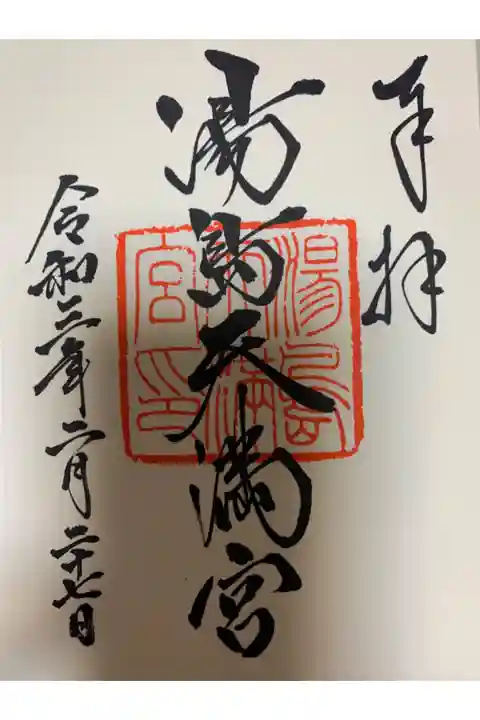 奉拝
湯島天満宮
湯島天満宮印
令和三年二月二十七日